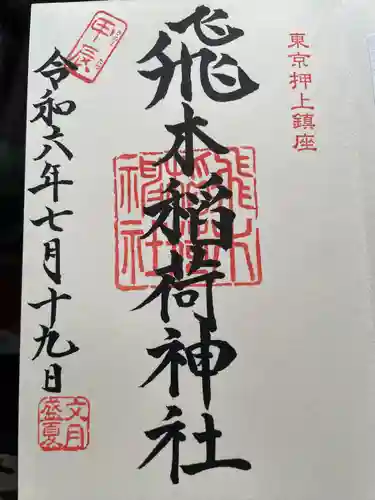 東京押上鎮座
飛木稲荷神社
飛木稲荷神社
令和六年七月十九日
文月
盛夏